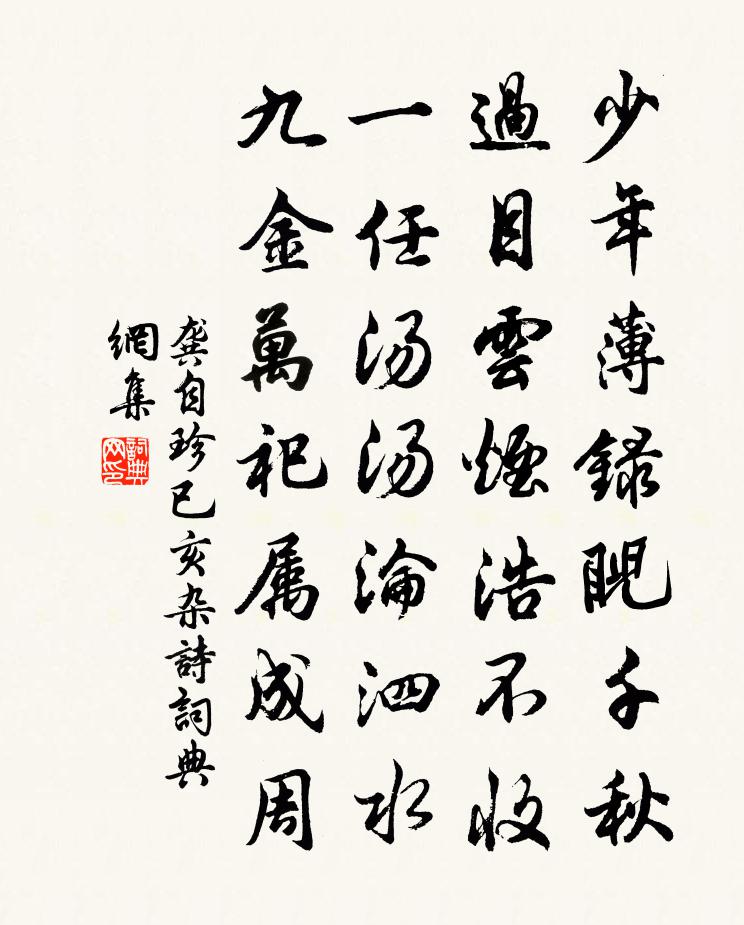 少年薄錄睨千秋
過目雲煙浩不收
一任湯湯淪泗水
九金萬祀属成周
龔自珍已亥杂詩詞典
網集
詞典
网印